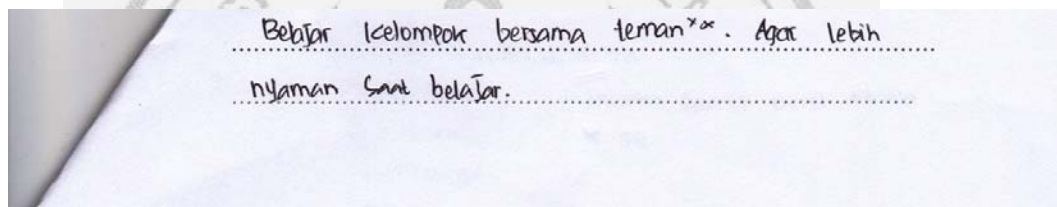 Belajar kelompok bersama teman**. Agar lebih
nyaman saat belajar.